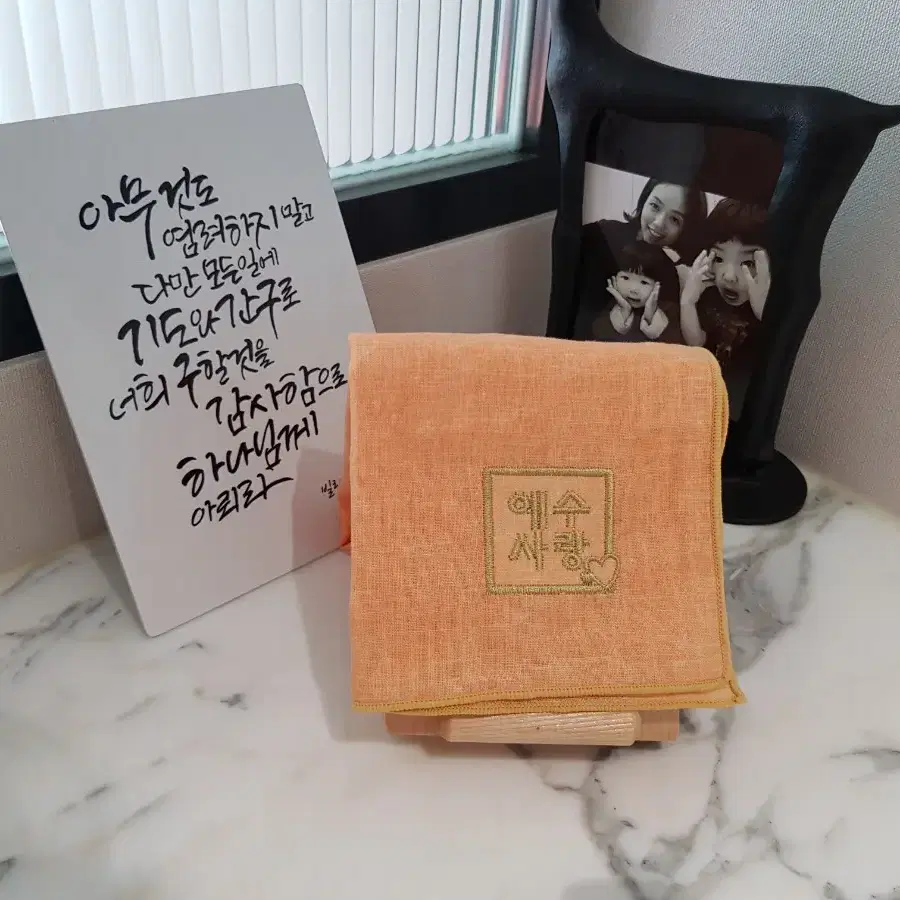 아무것도
염려하지말고
다만 모든일에
기도와 간구로
너희 구할것을
감사함으로
하나님께
아뢰라
빌
예수
사랑